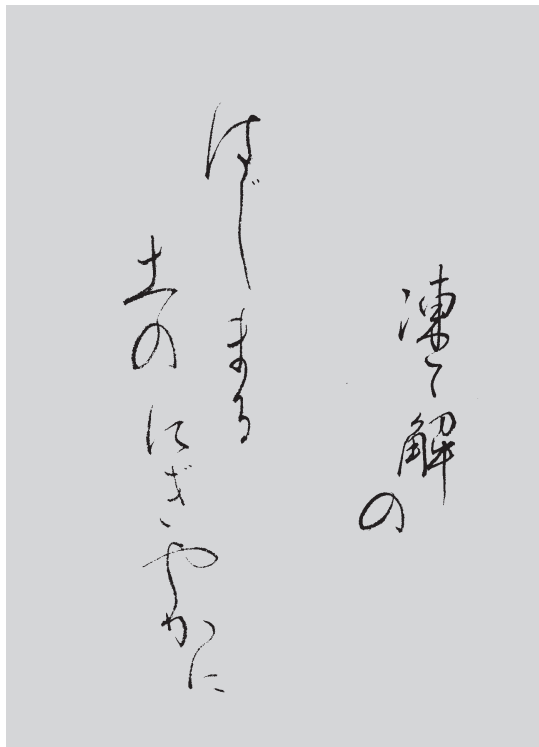 凍て解の
はじまる
土のにぎやかに